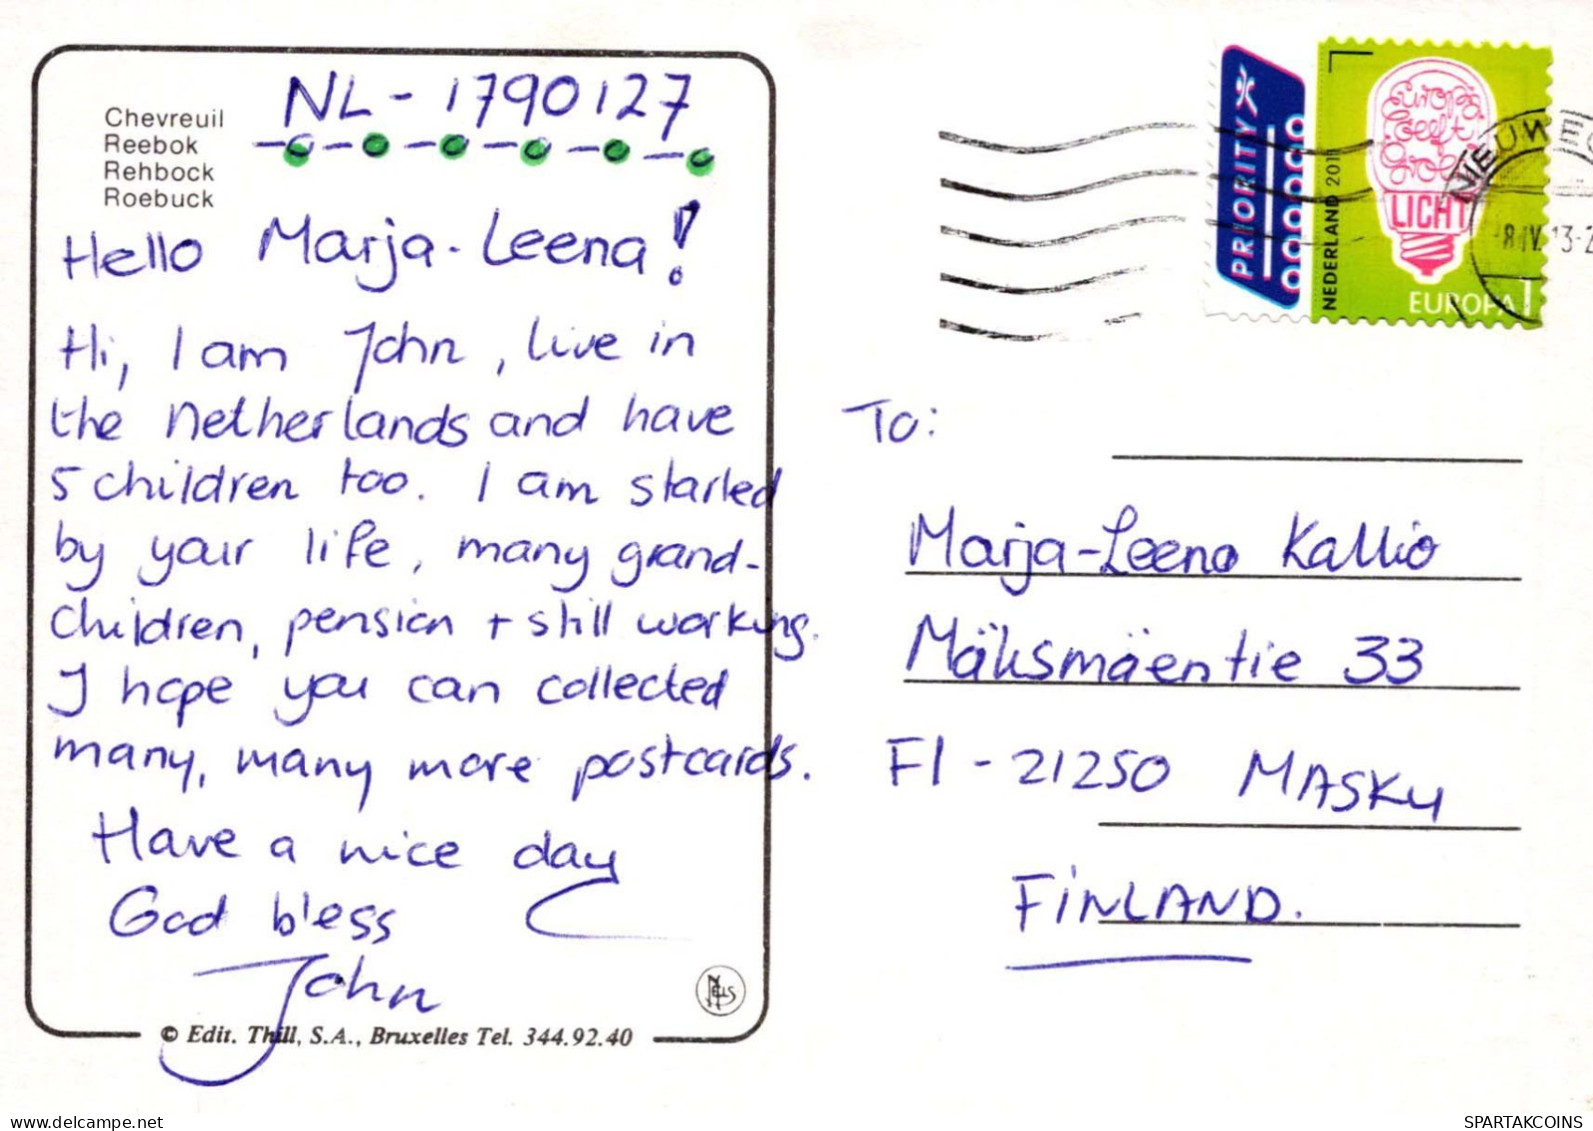 Chevreuil
Reebok
Rehbock
Roebuck
NL-1790127
Hello Marja-Leena!
Hi, I am John, live in
the Netherlands and have
5 children too. I am starled
by your life, many grand-
children, pension + still working.
I hope you can collected
many, many more postcards.
Have a nice day
God bless
John
© Edit. Thill, S.A., Bruxelles Tel. 344.92.40
NELS
PRIORITY
NEDERLAND 2011
europa
geeft
groen
LICHT
EUROPA 1
NIEUWE
To:
Marja-Leena Kallio
Mäksmäentie 33
FI-21250 MASKU
FINLAND.
www.delcampe.net
SPARTAKCOINS